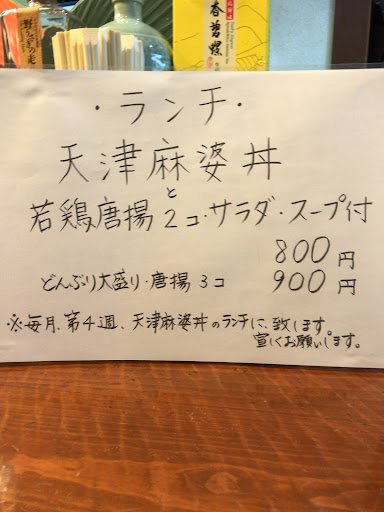 ・ランチ・
天津麻婆丼
と
若鶏唐揚2コ・サラダ・スープ付
800円
どんぶり大盛り・唐揚3コ 900円
※毎月、第4週、天津麻婆丼のランチに、致します。
宜しくお願いします。